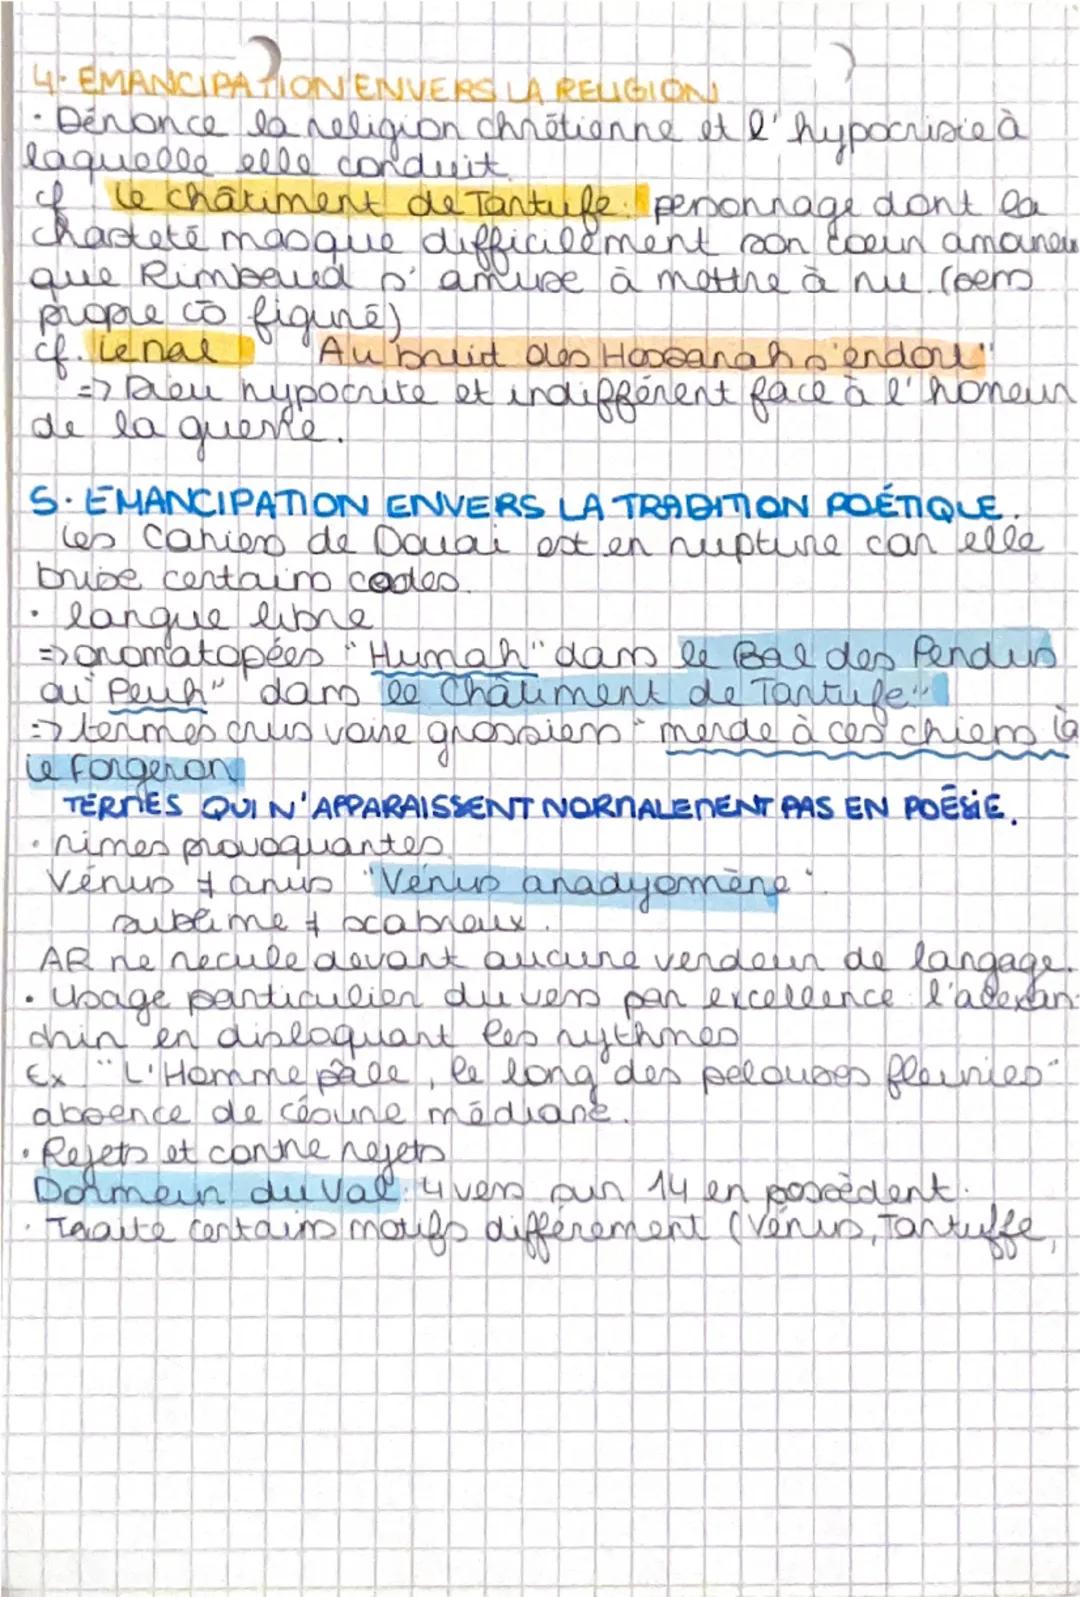 4. EMANCIPATION ENVERS LA RELIGION
• Dénonce la religion chrétienne et l'hypocrisie à
laquelle elle conduit.
cf le châtiment de Tartufe: personnage dont la
chasteté masque difficilement son coeur amoureu
que Rimbaud s'amuse à mettre à nu. (sens
propre cō figuré)
cf. Le mal "Au bruit des Hosanah s'endort"
=> Dieu hypocrite et indifférent face à l'horreur
de la guerre.
5. EMANCIPATION ENVERS LA TRADITION POÉTIQUE.
Les Cahiers de Douai est en rupture car elle
brise certains codes.
• langue libre
=> onomatopées "Hurrah" dans le Bal des Pendus
ou "Peuh" dans le Châtiment de Tartufe"
=> termes crus voire grossiers "merde à ces chiens là
Le Forgeron
TERMES QUI N'APPARAISSENT NORMALEMENT PAS EN POÉSIE.
• rimes provoquantes
Vénus ≠ anus "Vénus anadyomène".
sublime ≠ scabreux.
AR ne recule devant aucune verdeur de langage.
• Usage particulier du vers par excellence l'alexan-
drin en disloquant les rythmes
Ex "L'Homme pâle, le long des pelouses fleuries"
absence de césure médiane.
• Rejets et contre rejets
Dormeur du Val: 4 vers sur 14 en possèdent.
• Traite certains motifs différement (Vénus, Tartuffe,